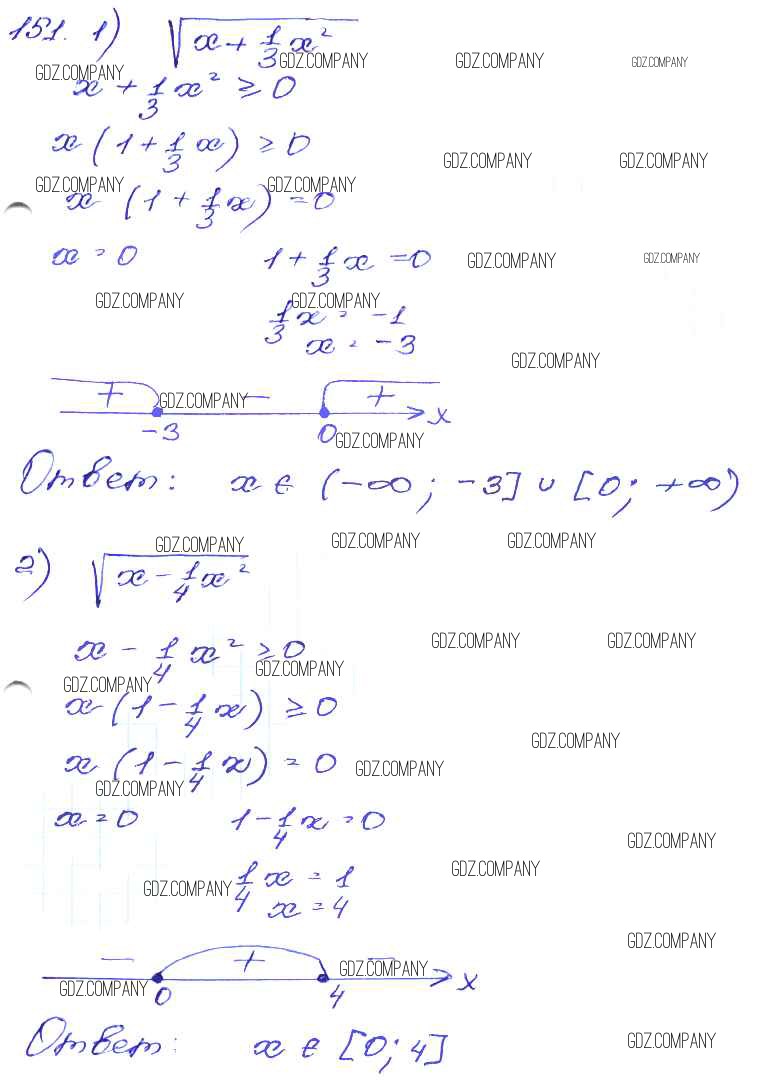 151. 1) √(x + 1/3 x²)
GDZ.COMPANY GDZ.COMPANY GDZ.COMPANY GDZ.COMPANY
x + 1/3 x² ≥ 0
x (1 + 1/3 x) ≥ 0
GDZ.COMPANY GDZ.COMPANY
GDZ.COMPANY GDZ.COMPANY
x (1 + 1/3 x) = 0
x = 0 1 + 1/3 x = 0 GDZ.COMPANY GDZ.COMPANY
GDZ.COMPANY GDZ.COMPANY
1/3 x = -1
x = -3
GDZ.COMPANY
+ GDZ.COMPANY − +
x
-3 0 GDZ.COMPANY
Ответ: x ∈ (-∞; -3] ∪ [0; +∞)
GDZ.COMPANY GDZ.COMPANY GDZ.COMPANY
2) √(x - 1/4 x²)
x - 1/4 x² ≥ 0 GDZ.COMPANY GDZ.COMPANY
GDZ.COMPANY GDZ.COMPANY
x (1 - 1/4 x) ≥ 0
GDZ.COMPANY
x (1 - 1/4 x) = 0 GDZ.COMPANY
GDZ.COMPANY
x = 0 1 - 1/4 x = 0
GDZ.COMPANY
GDZ.COMPANY 1/4 x = 1 GDZ.COMPANY
x = 4
GDZ.COMPANY
− + GDZ.COMPANY −
x
GDZ.COMPANY 0 4
Ответ: x ∈ [0; 4]
GDZ.COMPANY